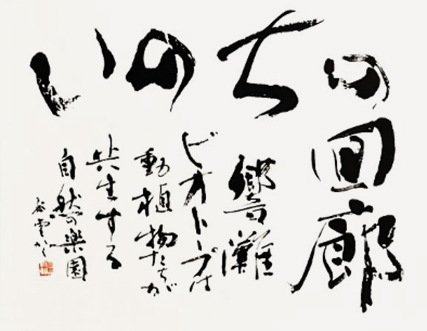 いのちの回廊
響灘
ビオトープは
動植物たちが
共生する
自然の樂園